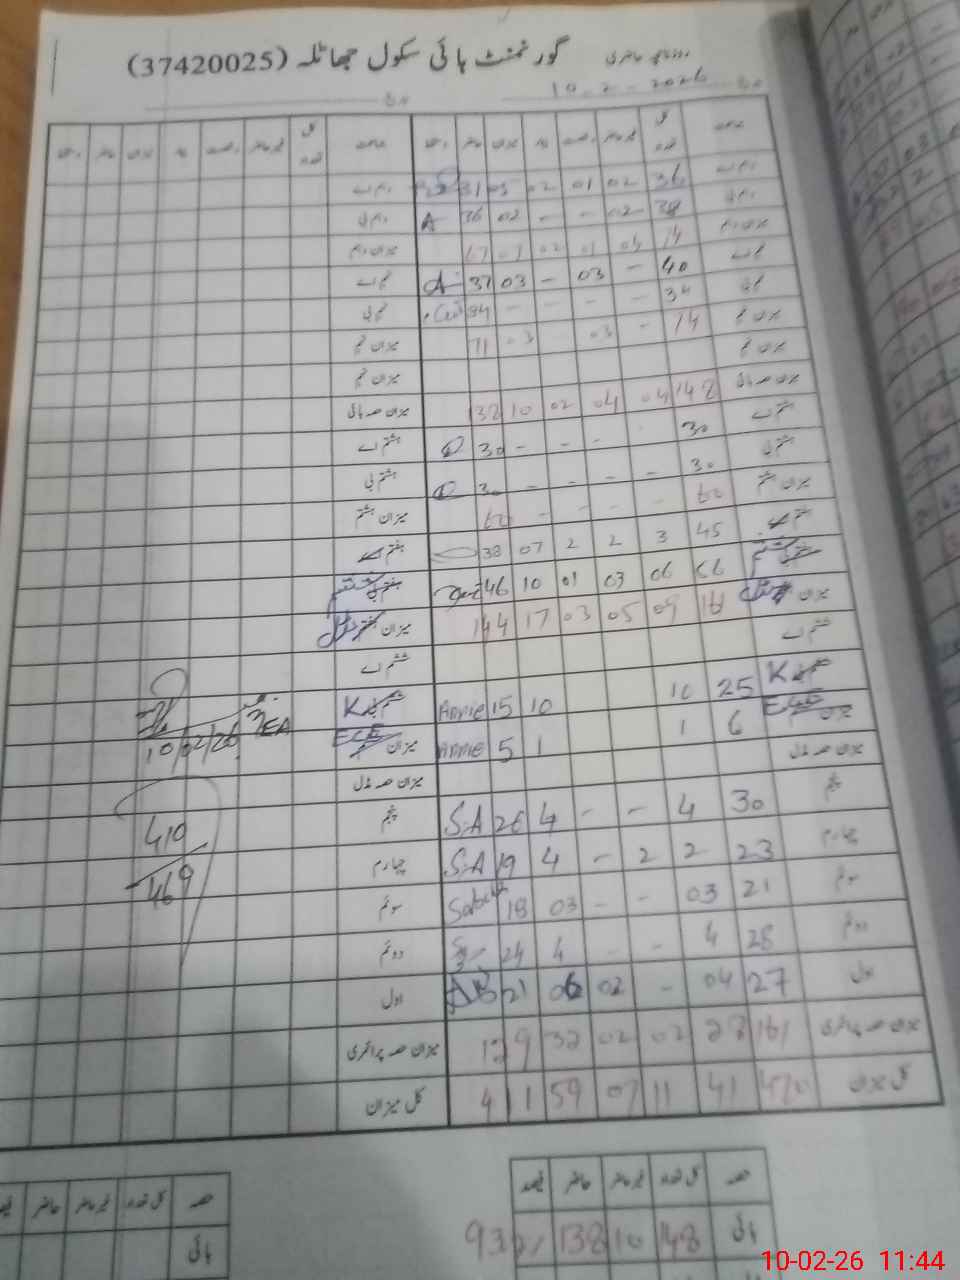 گورنمنٹ ہائی سکول جھاٹلہ (37420025) روزنامچہ حاضری
10-2-2026
جماعت کل تعداد غیر حاضر رخصت میزان حاضر جماعت کل تعداد غیر حاضر رخصت میزان حاضر
دہم اے 36 02 01 02 05 31 دہم اے
دہم بی 38 02 - - 02 36 A دہم بی
میزان دہم 04 01 02 07 67 میزان دہم
نہم اے 40 - 03 - 03 37 نہم اے
نہم بی 34 - - - - 34 نہم بی
میزان نہم - 03 03 71 میزان نہم
میزان نہم میزان نہم
میزان حصہ ہائی 148 04 04 02 10 138 میزان حصہ ہائی
ہشتم اے 30 - - - - 30 ہشتم اے
ہشتم بی 30 - - - - 30 ہشتم بی
میزان ہشتم 60 - - - - 60 میزان ہشتم
ہفتم 45 3 2 2 07 38 ہفتم
56 06 03 01 10 46
میزان 09 05 03 17 144 میزان
ششم اے ششم اے
K 25 10 10 15 Annie K
ECE 6 1 1 5 Annie ECE میزان
میزان حصہ مڈل میزان حصہ مڈل
پنجم 30 4 - - 4 26 S.A پنجم
چہارم 23 2 2 - 4 19 S.A چہارم
سوئم 21 03 - - 03 18 سوئم
دوئم 28 4 - - 4 24 دوئم
اول 27 04 - 02 06 21 اول
میزان حصہ پرائمری 161 28 02 02 32 129 میزان حصہ پرائمری
کل میزان 470 41 11 07 59 411 کل میزان
10/02/26
410
469
حصہ کل تعداد غیر حاضر حاضر فیصد حصہ کل تعداد غیر حاضر حاضر
ہائی 148 10 138 93% ہائی
10-02-26 11:44